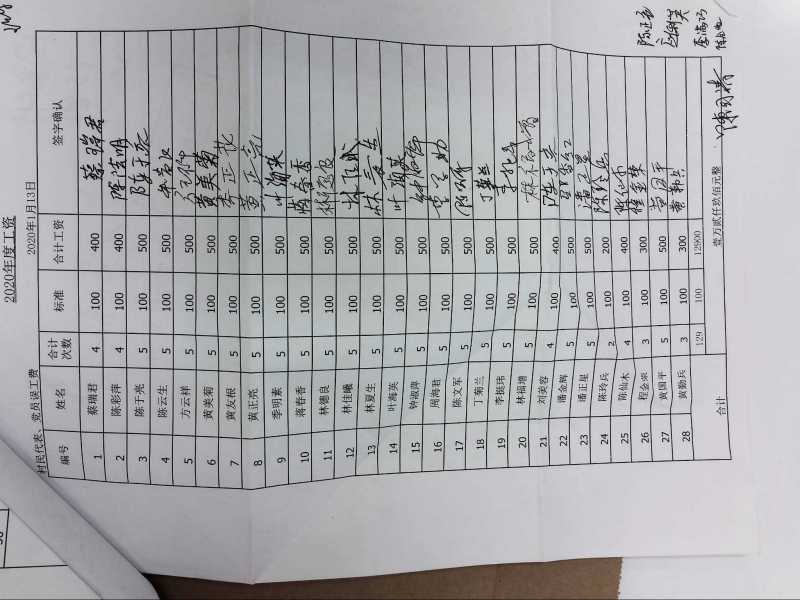 2020年度工资
村民代表、党员误工费 2020年1月13日
编号 姓名 合计次数 标准 合计工资 签字确认
1 蔡瑞君 4 100 400 蔡瑞君
2 陈彩萍 4 100 400
3 陈于亮 5 100 500 陈于亮
4 陈云生 5 100 500
5 方云祥 5 100 500
6 黄美菊 5 100 500 黄美菊
7 黄友根 5 100 500
8 黄正亮 5 100 500 黄正亮
9 季明素 5 100 500
10 蒋春香 5 100 500 蒋春香
11 林德良 5 100 500 林德良
12 林佳曦 5 100 500
13 林夏生 5 100 500 林夏生
14 叶海英 5 100 500 叶海英
15 钟淑萍 5 100 500
16 周海君 5 100 500
17 陈文军 5 100 500
18 丁菊兰 5 100 500
19 李振玮 5 100 500
20 林福增 5 100 500
21 刘美容 4 100 400
22 潘金辉 5 100 500
23 潘正星 5 100 500 潘正星
24 陈玲兵 2 100 200
25 陈仙木 4 100 400
26 程金荣 3 100 300 程金荣
27 黄国平 5 100 500 黄国平
28 黄勤兵 3 100 300
合计 129 100 12900 壹万贰仟玖佰元整